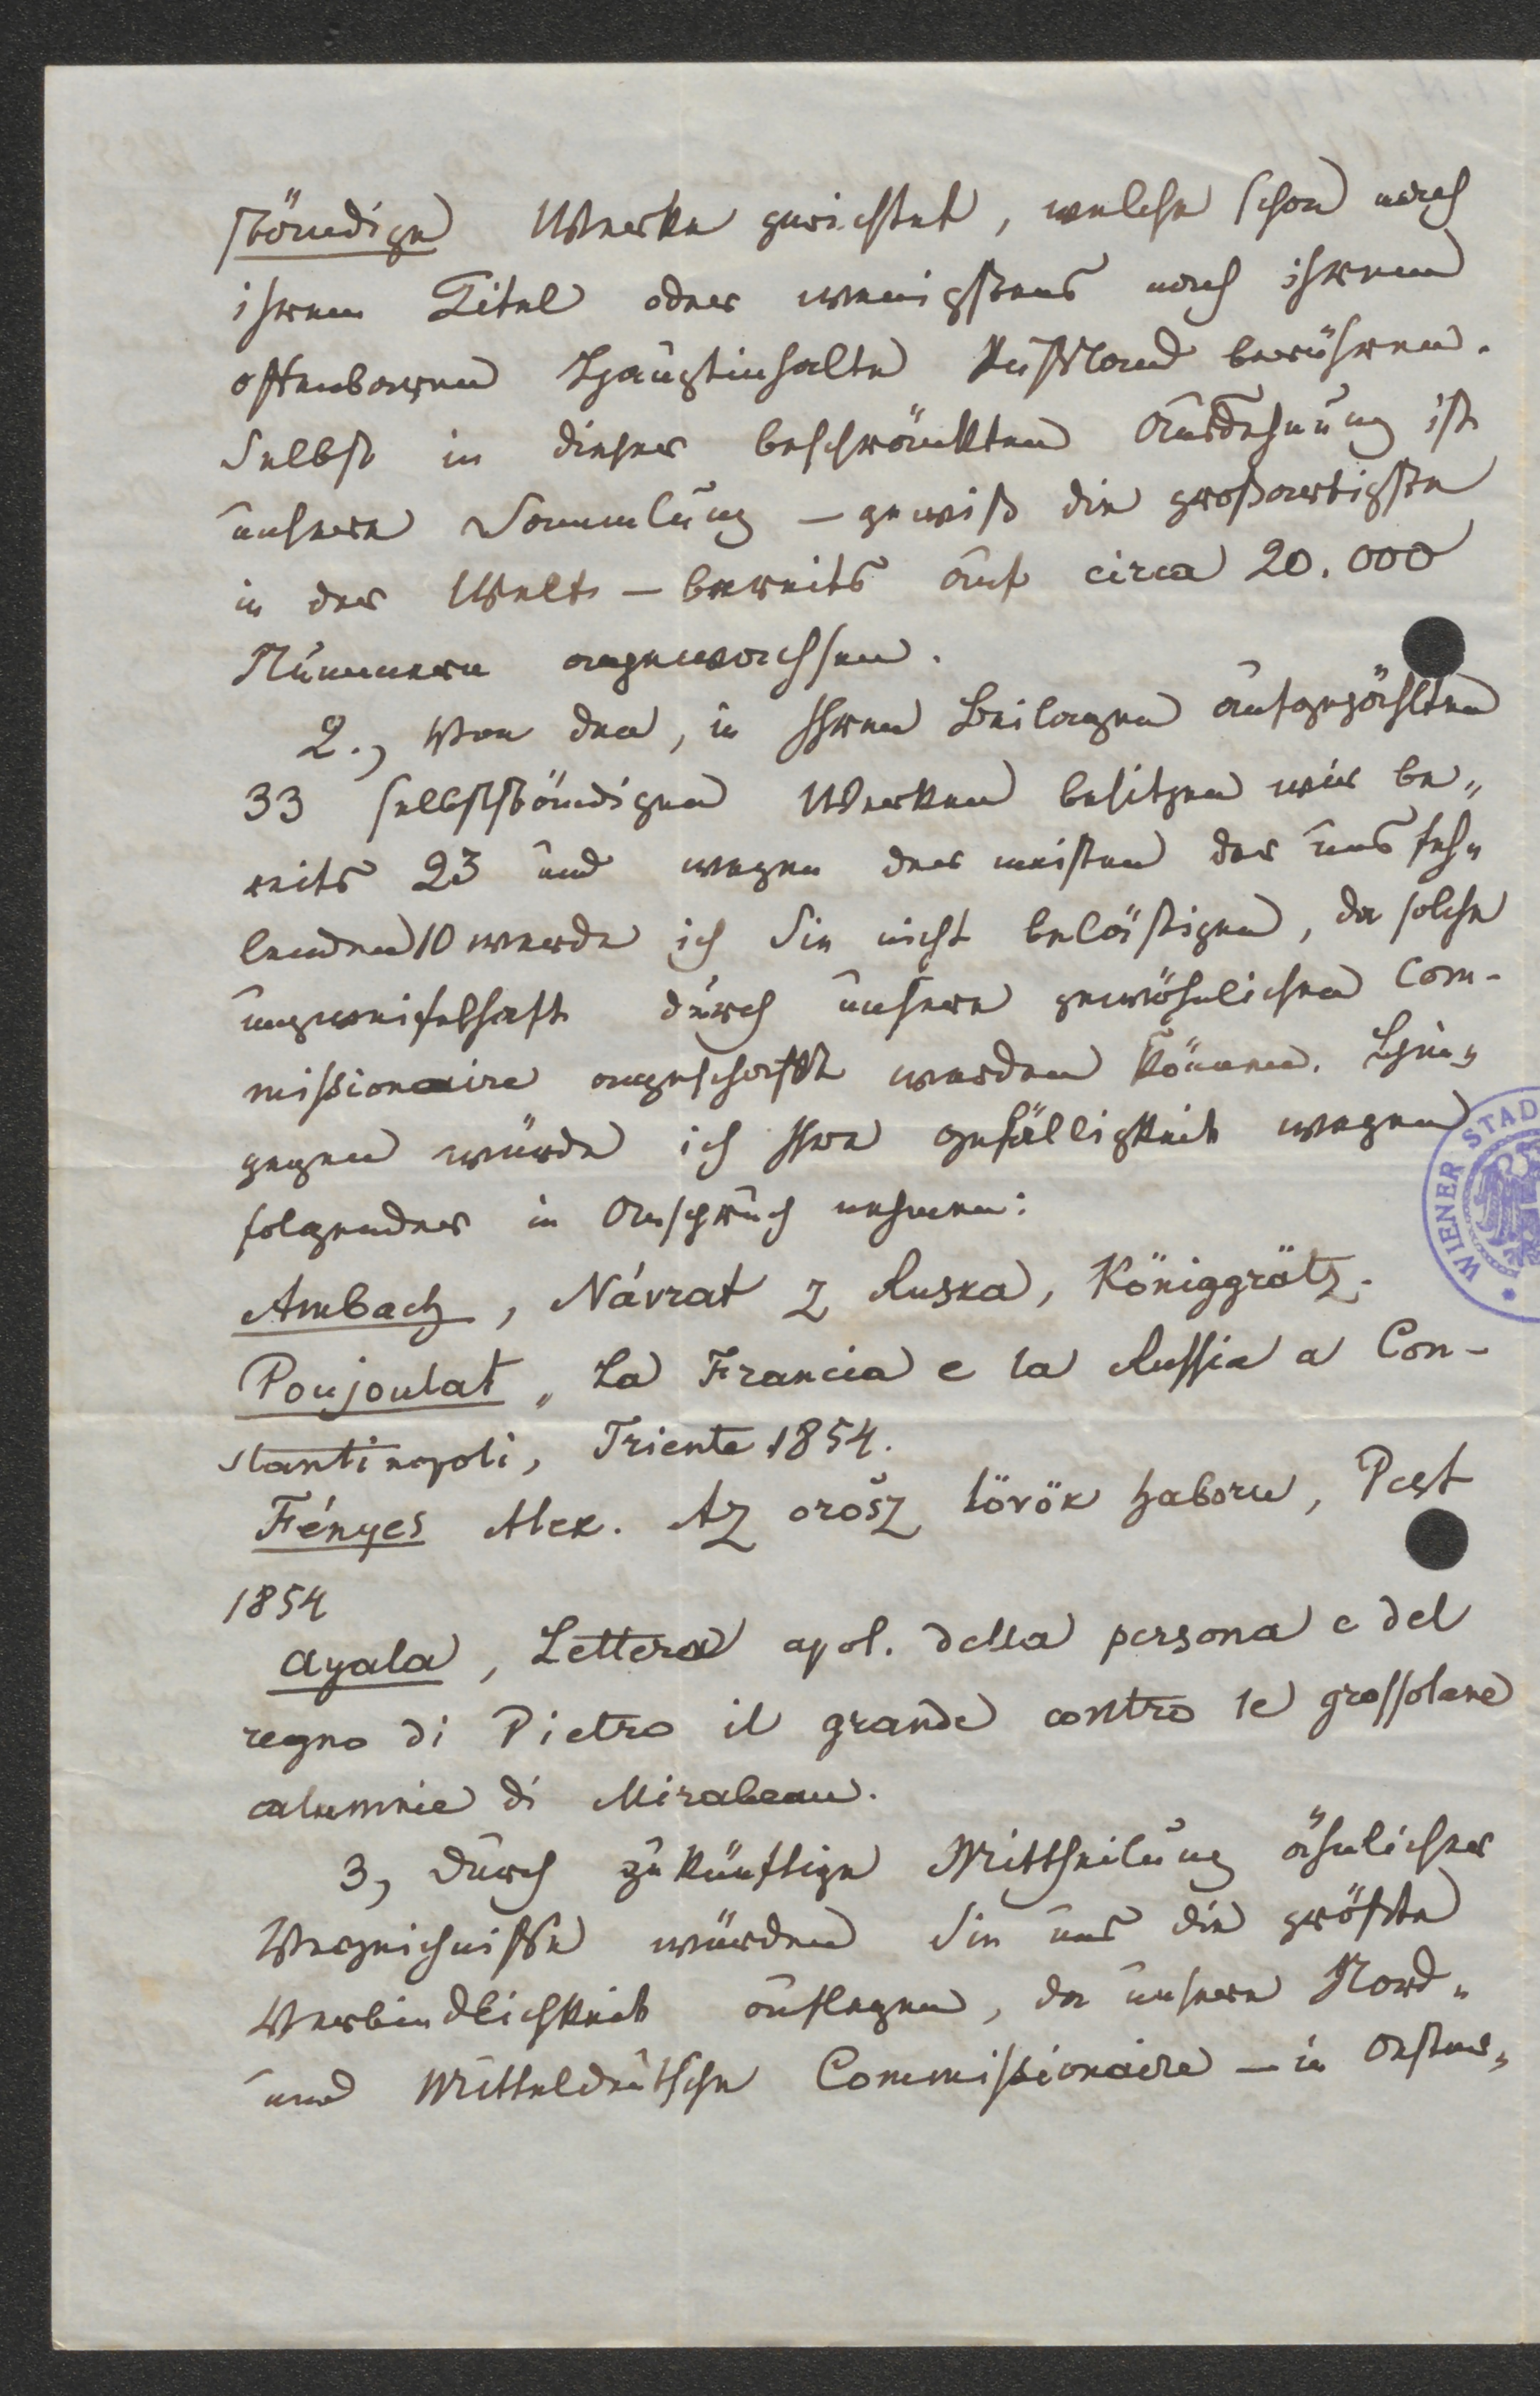 ständige Werke gerichtet, welche schon nach
ihrem Titel oder wenigstens nach ihrem
offenbaren Hauptinhalte Rußland berühren.
Selbst in dieser beschränkten Ausdehnung ist
unsere Sammlung – gewiß die großartigste
in der Welt – bereits auf circa 20.000
Nummern angewachsen.
2., Von den, in Ihren Beilagen aufgezählten
33 selbstständigen Werken besitzen wir be„
reits 23 und wegen der meisten der uns feh„
lenden 10 werde ich Sie nicht belästigen, da solche
unzweifelhaft durch unsere gewöhnlichen Com-
missionaire angeschafft werden können. Hin„
gegen würde ich Ihre Gefälligkeit wegen
folgender in Anspruch nehmen:
Ambach, Návrat z Ruska, Königgrätz.
Poujoulat, La Francia e la Russia a Con-
stantinopoli, Triente 1854.
Fényes Alex. Az orosz török haboru, Pest
1854
Ayala, Lettera apol. della persona e del
regno di Pietro il grande contro le grossolane
calumnie di Mirabeau.
3, Durch zukünftige Mittheilung ähnlicher
Verzeichnisse würden Sie uns die größte
Verbindlichkeit auflegen, da unsere Nord„
und Mitteldeutsche Commissionaire – in Oester„
WIENER STAD